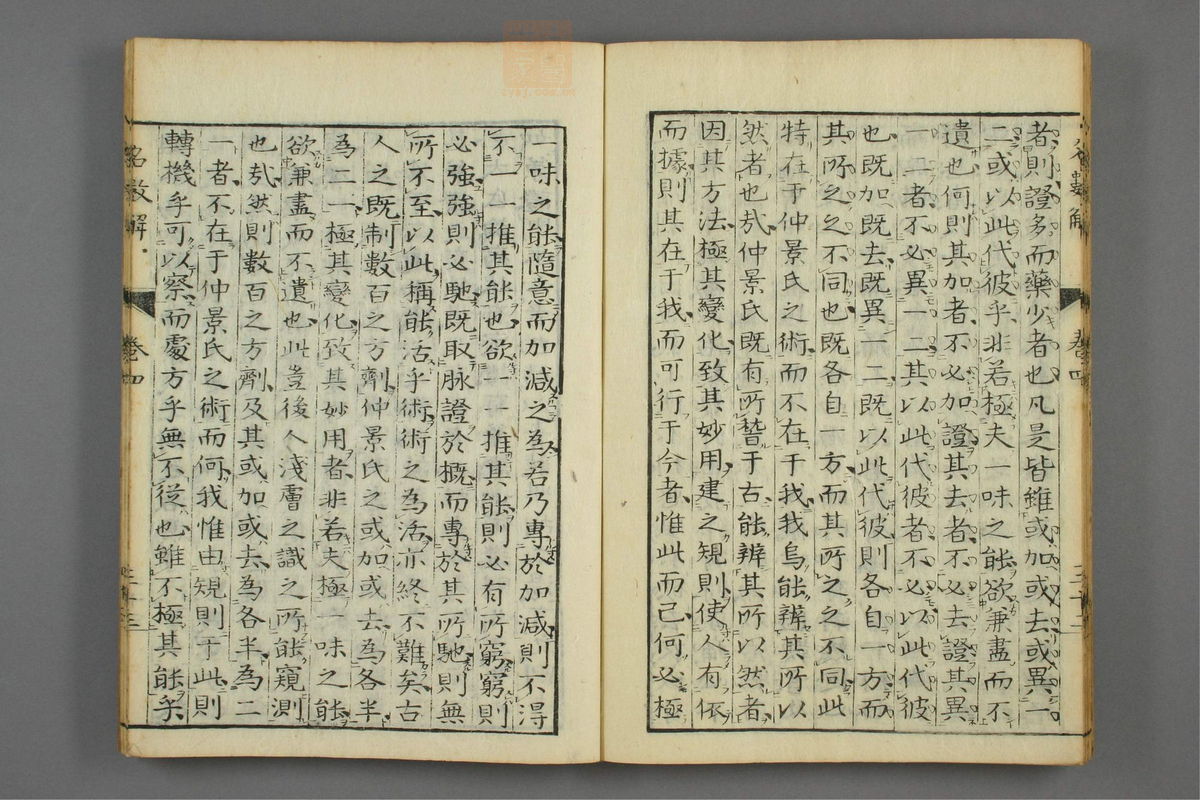 者則證多而藥少者也凡是皆雖或加或去或異一
二或以此代彼乎非若極夫一味之能欲兼盡而不
遺也何則其加者不必加證其去者不必去證其異
一二者不必異一二其以此代彼者不必以此代彼
也既加既去既異一二既以此代彼則各自一方而
其所之之不同也既各自一方而其所之之不同此
特在于仲景氏之術而不在于我我烏能辨其所以
然者也哉仲景氏既有所誓于古能辨其所以然者
因其方法極其變化致其妙用建之規則使人有依
而據則其在于我而可行于今者惟此而已何必極
卷四
一味之能隨意而加減之為若乃專於加減則不得
不一一推其能也欲一一推其能則必有所窮窮則
必強強則必馳既取脉證於概而專於其所馳則無
所不至以此稱能活乎術術之為活亦終不難矣古
人之既制數百之方劑仲景氏之或加或去為各半
為二一極其變化致其妙用者非若夫極一味之能
欲兼盡而不遺也此豈後人淺膚之識之所能窺測
也哉然則數百之方劑及其或加或去為各半為二
一者不在于仲景氏之術而何我惟由規則于此則
轉機乎可以察而處方乎無不從也雖不極其能乎
數解
卷四